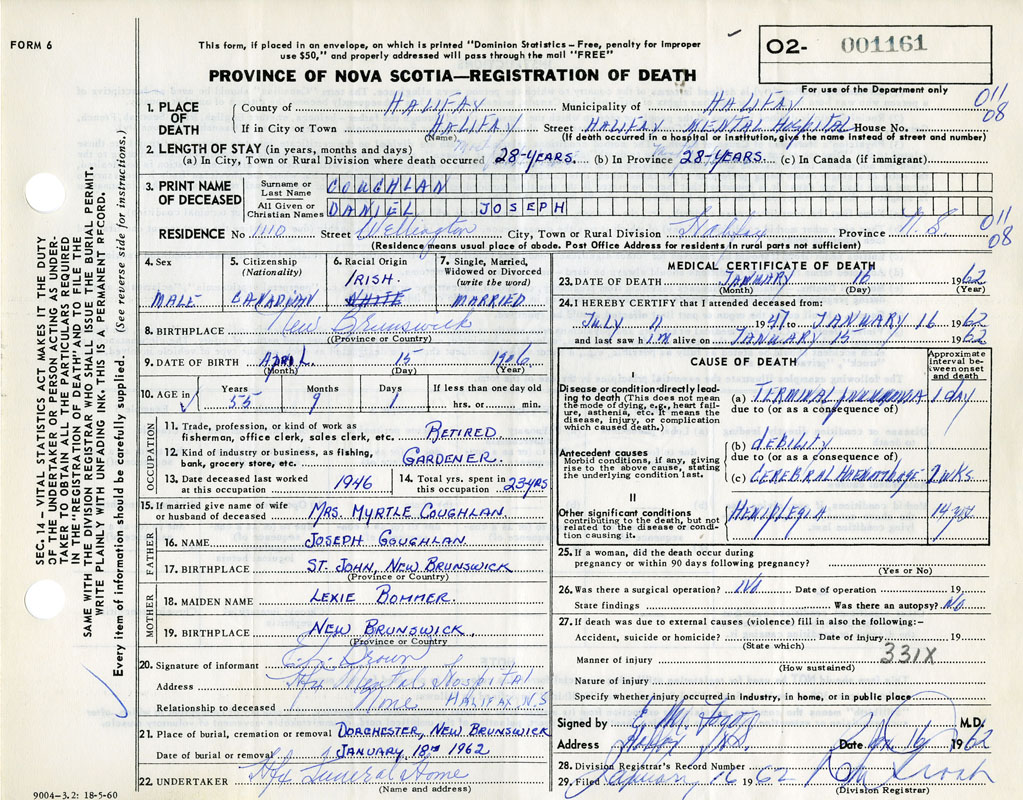 FORM 6
This form, if placed in an envelope, on which is printed "Dominion Statistics – Free, penalty for improper
use $50," and properly addressed will pass through the mail "FREE"
O2- 001161
For use of the Department only
PROVINCE OF NOVA SCOTIA—REGISTRATION OF DEATH
SEC. 14 – VITAL STATISTICS ACT MAKES IT THE DUTY
OF THE UNDERTAKER OR PERSON ACTING AS UNDER-
TAKER TO OBTAIN ALL THE PARTICULARS REQUIRED
IN THE "REGISTRATION OF DEATH" AND TO FILE THE
SAME WITH THE DIVISION REGISTRAR WHO SHALL ISSUE THE BURIAL PERMIT.
WRITE PLAINLY WITH UNFADING INK. THIS IS A PERMANENT RECORD.
Every item of information should be carefully supplied. (See reverse side for instructions.)
1. PLACE OF DEATH
County of HALIFAX Municipality of HALIFAX 011
If in City or Town HALIFAX Street HALIFAX MENTAL HOSPITAL House No. 08
(Name) (If death occurred in a hospital or institution, give the name instead of street and number)
2. LENGTH OF STAY (in years, months and days)
(a) In City, Town or Rural Division where death occurred 28-YEARS. (b) In Province 28-YEARS. (c) In Canada (if immigrant)
3. PRINT NAME OF DECEASED
Surname or Last Name COUGHLAN
All Given or Christian Names DANIEL JOSEPH
RESIDENCE No 1110 Street Wellington City, Town or Rural Division Halifax Province N.S 011 08
(Residence means usual place of abode. Post Office Address for residents in rural parts not sufficient)
4. Sex MALE
5. Citizenship (Nationality) CANADIAN
6. Racial Origin IRISH. WHITE
7. Single, Married, Widowed or Divorced (write the word) MARRIED
8. BIRTHPLACE New Brunswick
(Province or Country)
9. DATE OF BIRTH APRIL 15 1906
(Month) (Day) (Year)
10. AGE in Years 55 Months 9 Days 1 If less than one day old hrs. or min.
OCCUPATION
11. Trade, profession, or kind of work as fisherman, office clerk, sales clerk, etc. RETIRED
12. Kind of industry or business, as fishing, bank, grocery store, etc. GARDENER.
13. Date deceased last worked at this occupation 1946
14. Total yrs. spent in this occupation 23 YRS
15. If married give name of wife or husband of deceased MRS. MYRTLE COUGHLAN.
FATHER
16. NAME JOSEPH COUGHLAN.
17. BIRTHPLACE ST. JOHN, NEW BRUNSWICK
(Province or Country)
MOTHER
18. MAIDEN NAME LEXIE BOMMER.
19. BIRTHPLACE NEW BRUNSWICK.
(Province or Country)
20. Signature of informant Brown
Address Hfx Mental Hospital
Relationship to deceased None HALIFAX, N.S
21. Place of burial, cremation or removal DORCHESTER, NEW BRUNSWICK
Date of burial or removal JANUARY 18TH 1962
22. UNDERTAKER Hfx Funeral Home
(Name and address)
9004-3.2: 18-5-60
MEDICAL CERTIFICATE OF DEATH
23. DATE OF DEATH JANUARY 16 1962
(Month) (Day) (Year)
24. I HEREBY CERTIFY that I attended deceased from:
JULY 11 1947 to JANUARY 16 1962
and last saw him alive on JANUARY 15 1962
CAUSE OF DEATH
Approximate Interval between onset and death
I
Disease or condition directly leading to death (This does not mean the mode of dying, e.g., heart failure, asthenia, etc. It means the disease, injury, or complication which caused death.)
(a) TERMINAL PNEUMONIA 1 day
due to (or as a consequence of)
Antecedent causes
Morbid conditions, if any, giving rise to the above cause, stating the underlying condition last.
(b) DEBILITY
due to (or as a consequence of)
(c) CEREBRAL HAEMORRHAGE 2 WKS
II
Other significant conditions
contributing to the death, but not related to the disease or condition causing it.
HEMIPLEGIA 14 yrs
25. If a woman, did the death occur during
pregnancy or within 90 days following pregnancy?
(Yes or No)
26. Was there a surgical operation? No Date of operation 19
State findings Was there an autopsy? No
27. If death was due to external causes (violence) fill in also the following:–
Accident, suicide or homicide? Date of injury 19
(State which)
Manner of injury 331X
(How sustained)
Nature of injury
Specify whether injury occurred in industry, in home, or in public place
Signed by M.D.
Address Date Jan 16 1962
28. Division Registrar's Record Number
29. Filed January 16 62
(Division Registrar)